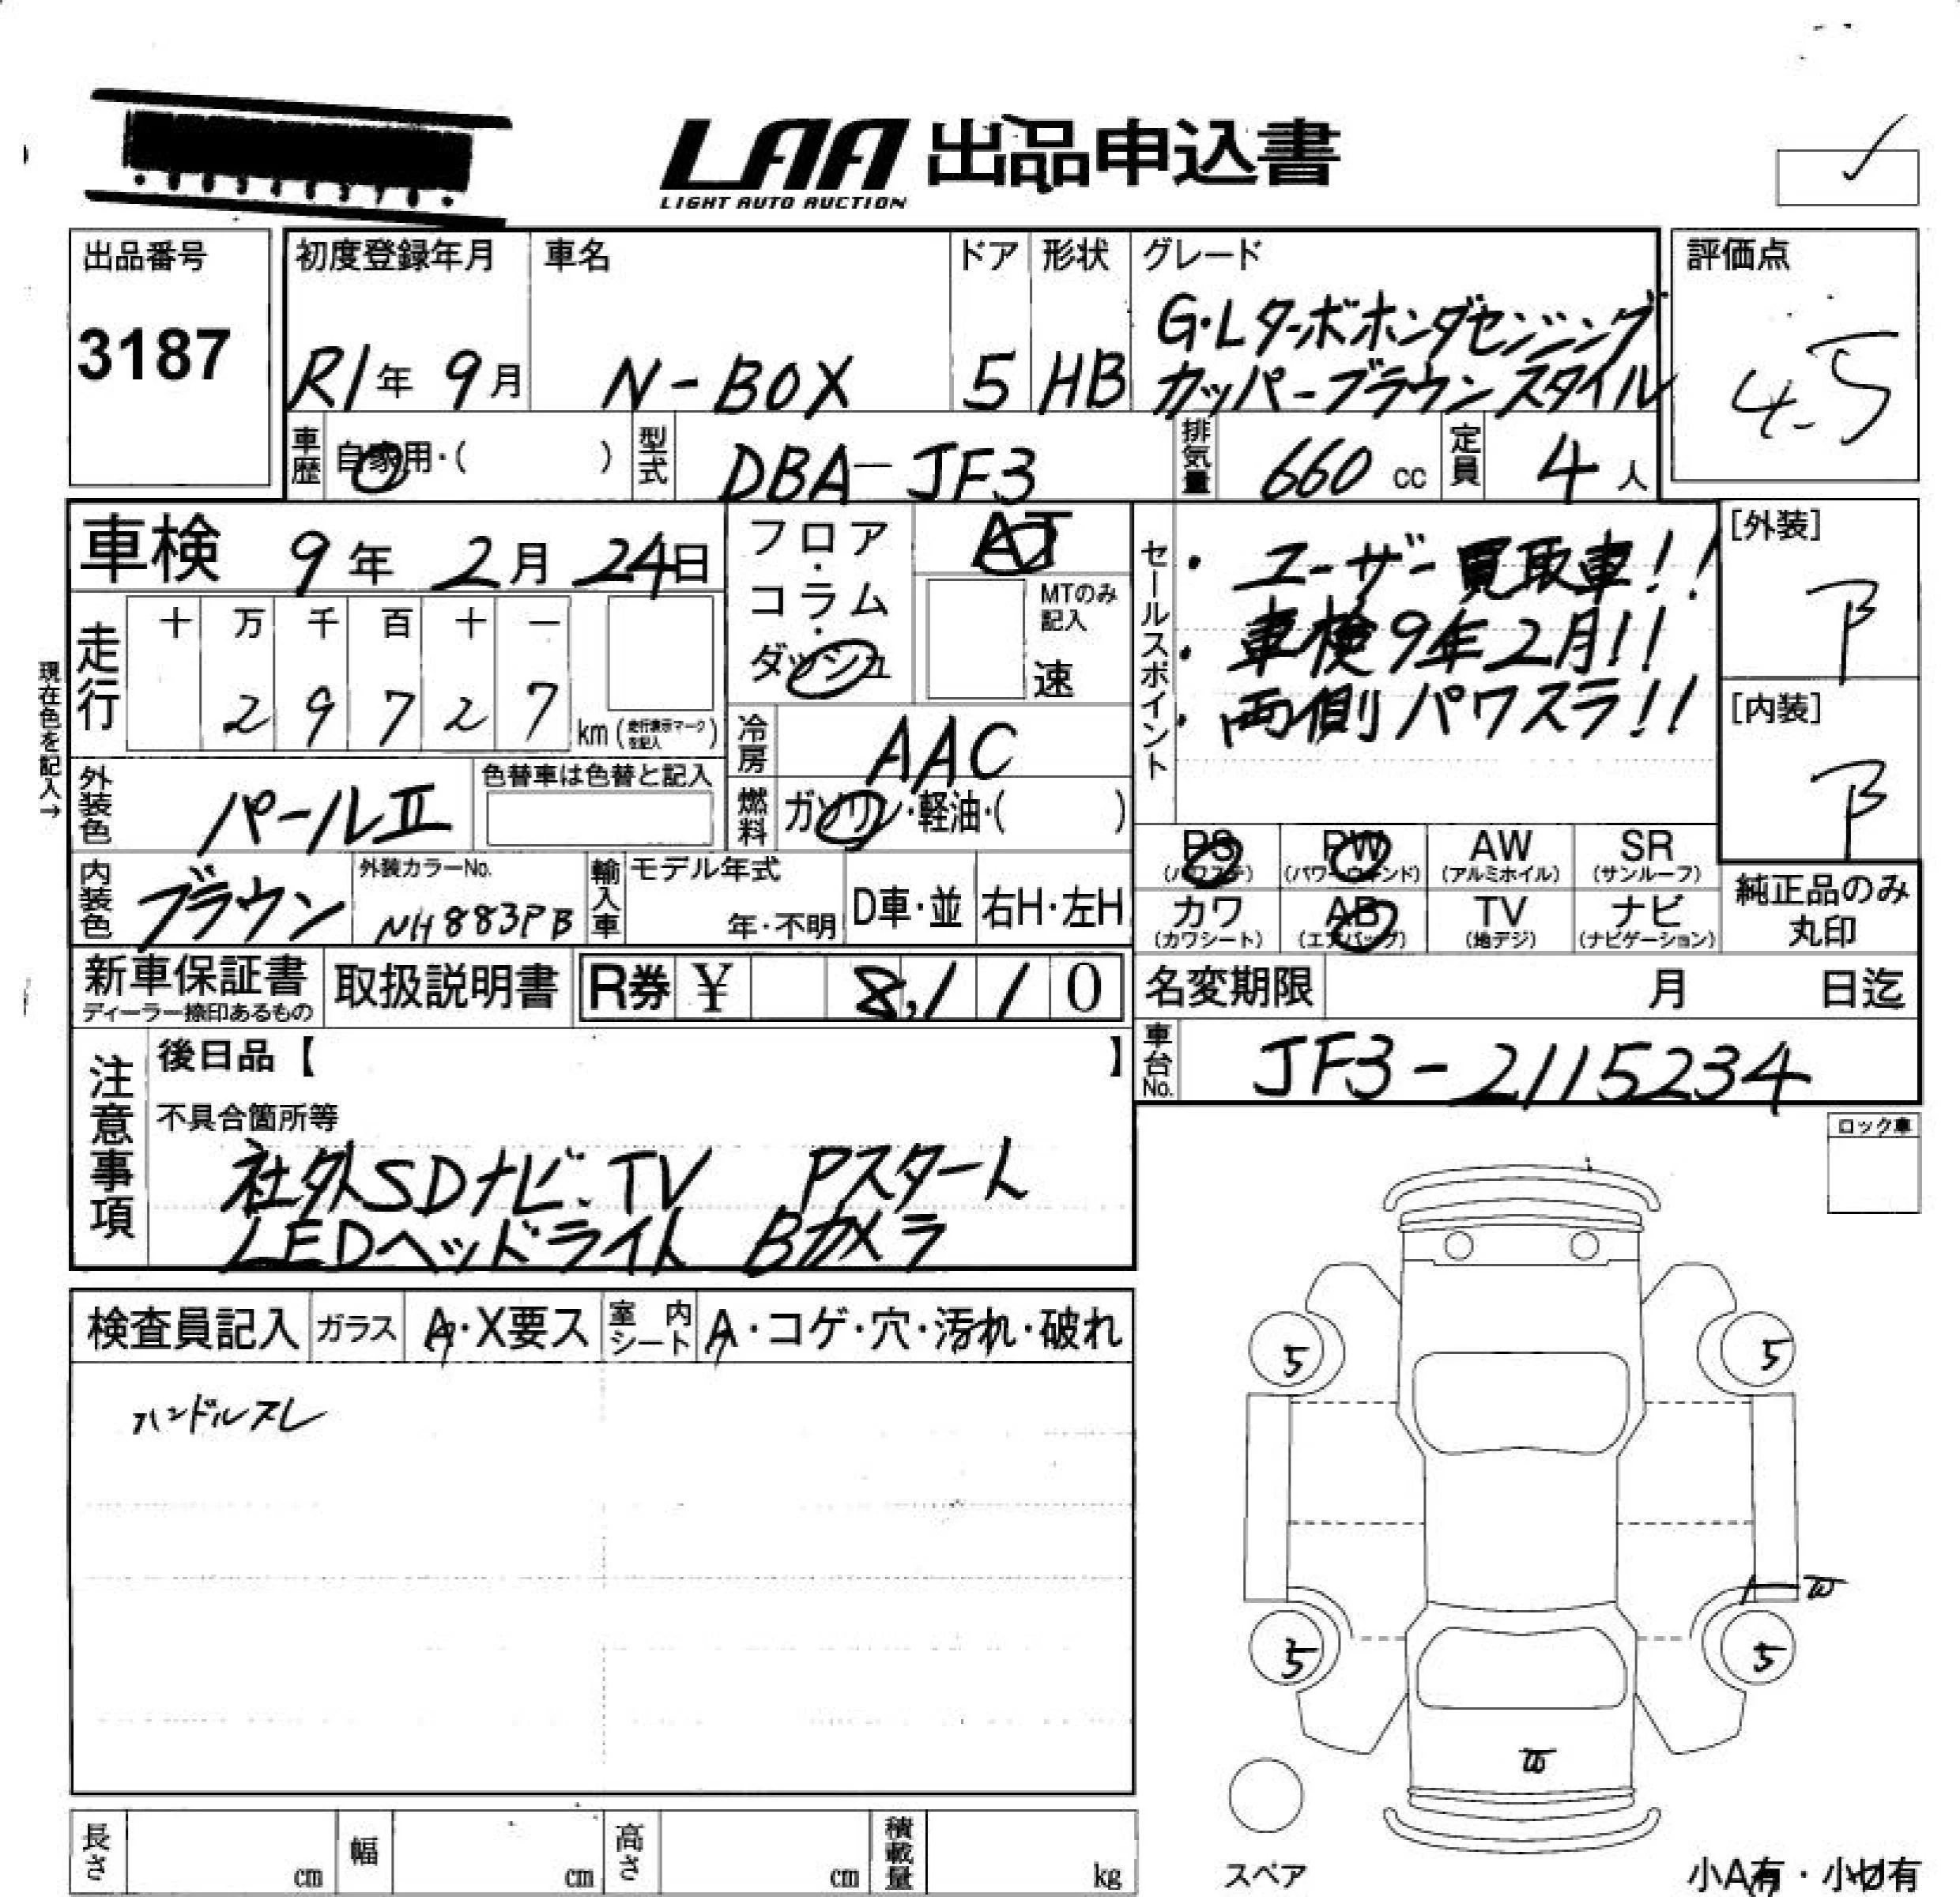 LAA 出品申込書
LIGHT AUTO AUCTION
出品番号
3187
初度登録年月
R1年 9月
車名
N-BOX
ドア
5
形状
HB
グレード
G・Lターボホンダセンシング
カッパーブラウンスタイル
評価点
4.5
車歴 自家用・( )
型式 DBA-JF3
排気量 660 cc
定員 4人
車検 9年 2月 24日
現在色を記入→
走行
十 万 千 百 十 一
2 9 7 2 7 km (走行表示マークを記入)
フロア・コラム・ダッシュ
AT
MTのみ記入
速
冷房 AAC
燃料 ガソリン・軽油・( )
セールスポイント
・ユーザー買取車!!
・車検9年2月!!
・両側パワスラ!!
[外装]
B
[内装]
B
外装色 パールII
色替車は色替と記入
内装色 ブラウン
外装カラーNo.
NH883PB
輸入車
モデル年式
年・不明
D車・並
右H・左H
PS (パワステ)
PW (パワーウィンド)
AW (アルミホイル)
SR (サンルーフ)
カワ (カワシート)
AB (エアバッグ)
TV (地デジ)
ナビ (ナビゲーション)
純正品のみ
丸印
新車保証書
ディーラー捺印あるもの
取扱説明書
R券 ¥ 8,110
名変期限 月 日迄
車台No. JF3-2115234
注意事項
後日品【 】
不具合箇所等
社外SDナビ.TV Pスタート
LEDヘッドライト Bカメラ
ロック車
検査員記入
ガラス A・X要ス
室内シート A・コゲ・穴・汚れ・破れ
ハンドルスレ
5
5
5
5
スペア
長さ cm
幅 cm
高さ cm
積載量 kg
小A有・小U有